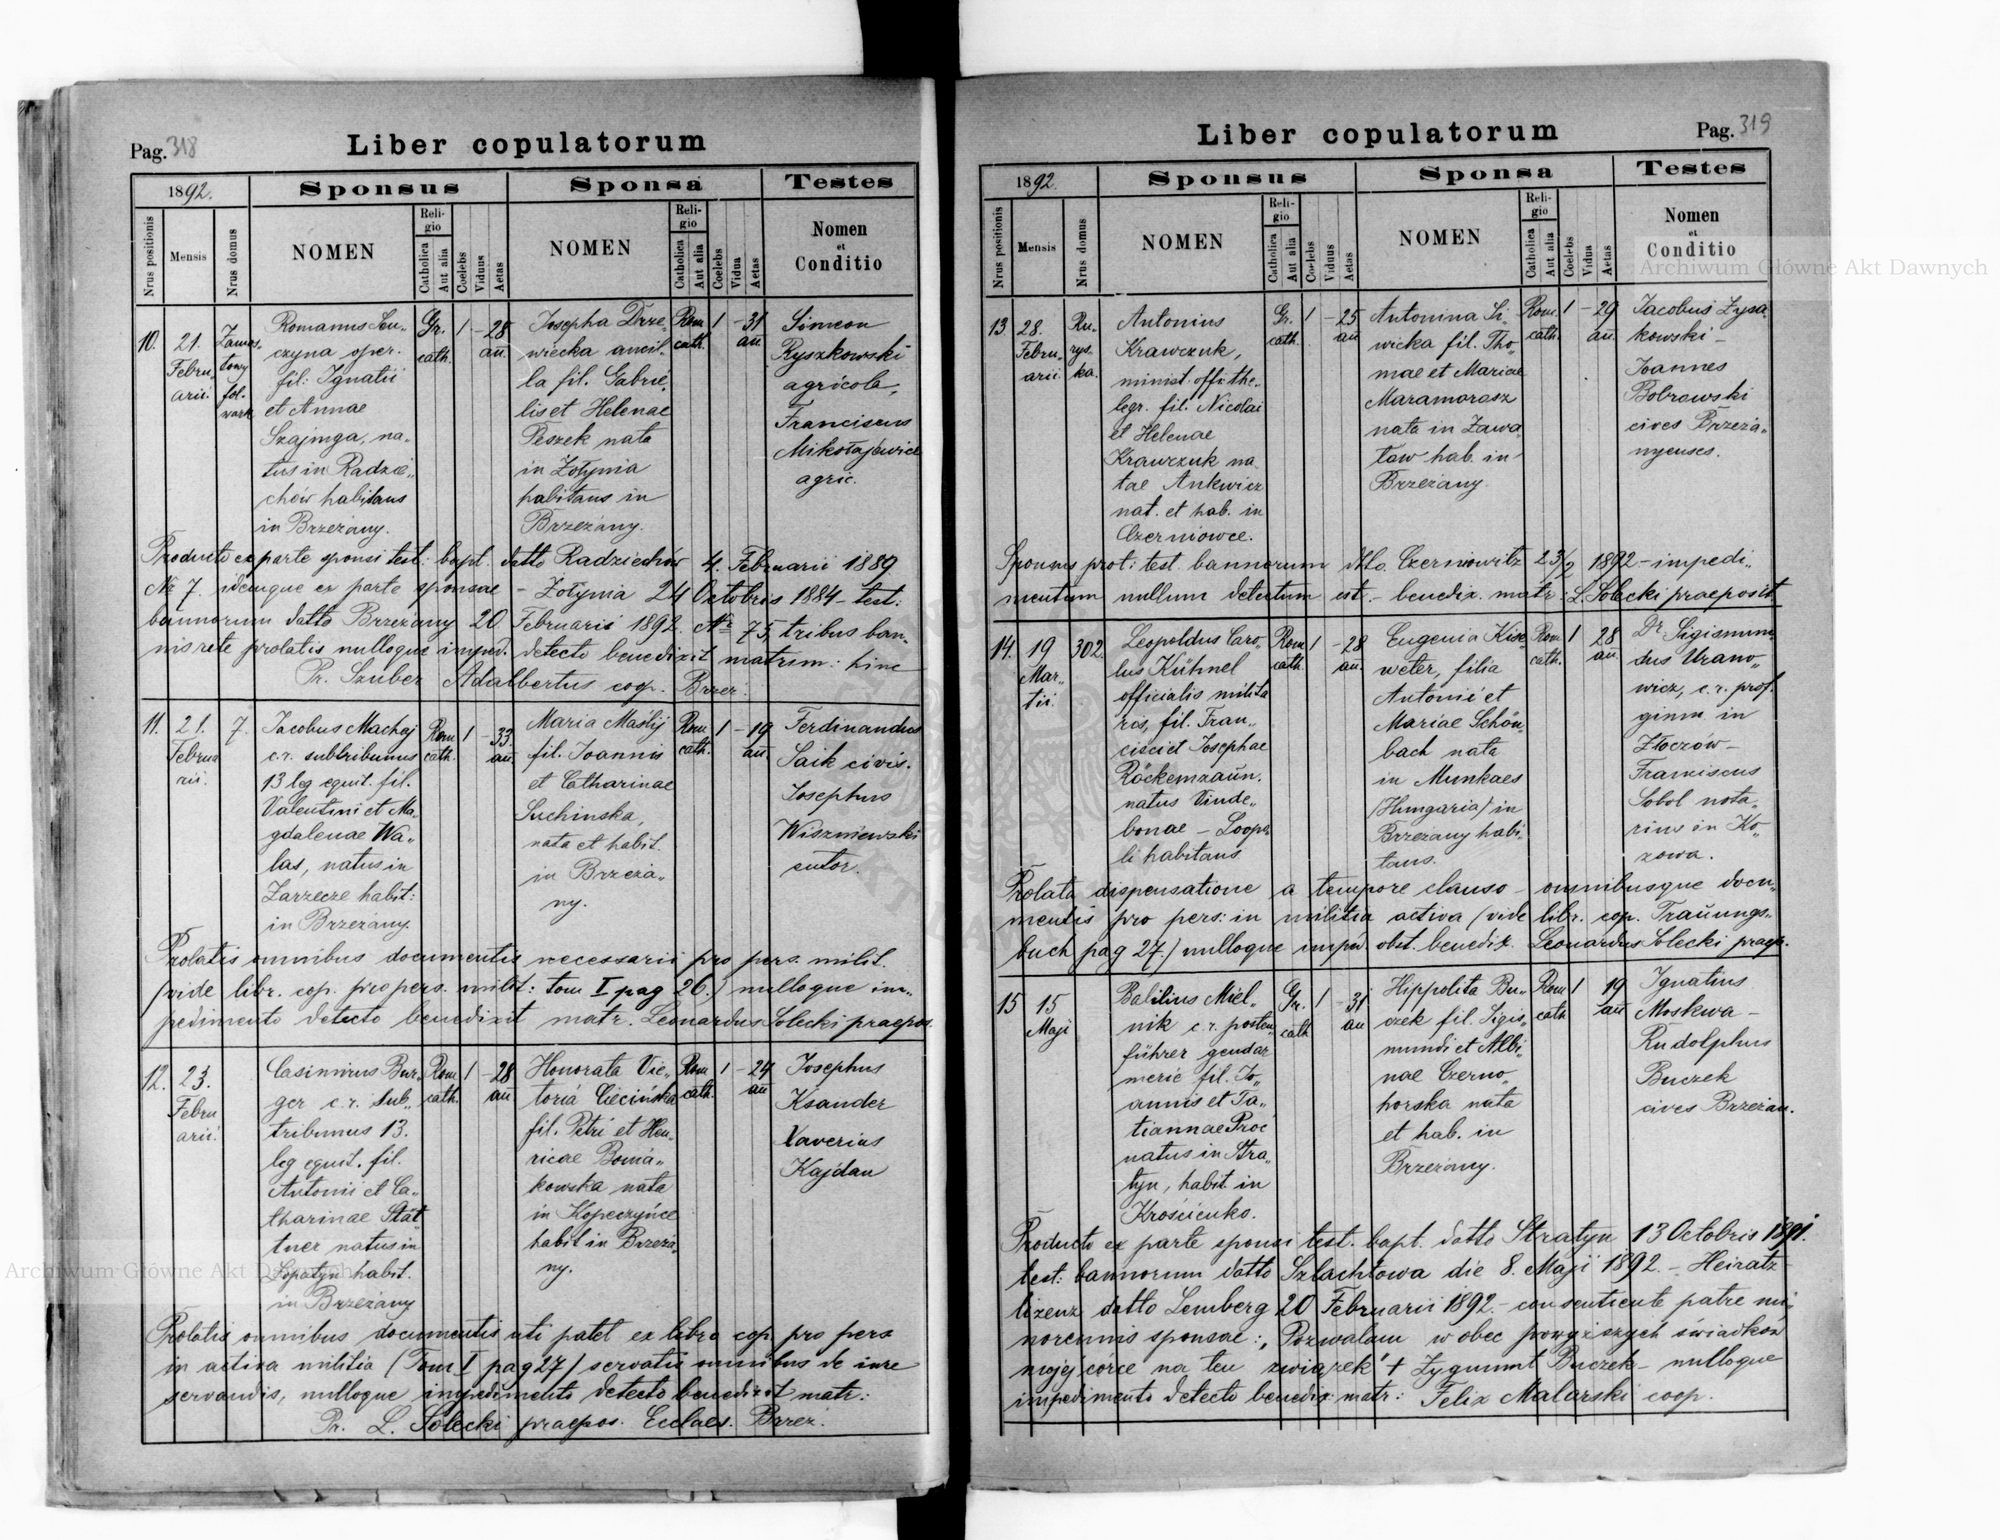 Pag. 318
Liber copulatorum
1892.
Sponsus
Sponsa
Testes
Nrus positionis
Mensis
Nrus domus
NOMEN
Religio
Catholica
Aut alia
Coelebs
Viduus
Aetas
NOMEN
Religio
Catholica
Aut alia
Coelebs
Vidua
Aetas
Nomen
et
Conditio
10.
21.
Febru„
arii.
Zamos„
towy
fol„
wark
Romanus Sen„
czyna oper.
fil: Ignatii
et Annae
Szajnga, na„
tus in Radzie„
chów habitans
in Brzeżany.
Gr.
cath.
1
– 28
an.
Josepha Drze„
wiecka ancil„
la fil. Gabrie„
lis et Helenae
Peszek nata
in Żołynia
habitans in
Brzeżany.
Rom
cath.
1
– 31
an.
Simeon
Ryszkowski
agricola,
Franciscus
Mikołajewicz
agric.
Producto ex parte sponsi test. bapt. datto Radziechów 4. Februarii 1889
No 7. idemque ex parte sponsae – Żołynia 24 Octobris 1884 – test:
bannorum datto Brzeżany 20 Februarii 1892. Nr 75, tribus ban„
nis rite prolatis nulloque imped. detecto benedixit matrim: hinc
Pr. Szuber Adalbertus cop. Brzez.
11.
21.
Februa
rii.
7.
Jacobus Machaj
c.r. subtribunus
13 leg equit. fil.
Valentini et Ma„
gdalenae Wa„
las, natus in
Zarzecze habit:
in Brzeżany.
Rom
cath.
1
– 33
an.
Maria Maślij
fil. Joannis
et Catharinae
Suchinska,
nata et habit.
in Brzeża„
ny.
Rom
cath.
1
– 19
an.
Ferdinandus
Saik civis.
Josephus
Wiszniewski
sutor.
Prolatis omnibus documentis necessariis pro pers. milit.
(vide libr. cop. pro pers. milit: tom I pag 26.) nulloque im„
pedimento detecto benedixit matr. Leonardus Solecki praepos.
12.
23.
Febru
arii.
Casimirus Bur„
ger c.r. sub„
tribunus 13.
leg equit. fil.
Antonii et Ca„
tharinae Stät„
tner natus in
Łopatyn habit.
in Brzeżany
Rom
cath.
1
– 28
an
Honorata Vic„
toria Ciecińska
fil. Petri et Hen„
ricae Boma„
kowska nata
in Kopeczyńce
habit in Brzeża„
ny.
Rom
cath.
1
– 24
an
Josephus
Ksander
Xaverius
Kajdan
Prolatis omnibus documentis uti patet ex libro cop. pro pers
in activa militia (Tom I pag 27) servatis omnibus de iure
servandis, nulloque impedimento detecto benedixit matr:
Pr. L. Solecki praepos. Ecclaes. Brzez.
Pag. 319
Liber copulatorum
1892.
Sponsus
Sponsa
Testes
Nrus positionis
Mensis
Nrus domus
NOMEN
Religio
Catholica
Aut alia
Coelebs
Viduus
Aetas
NOMEN
Religio
Catholica
Aut alia
Coelebs
Vidua
Aetas
Nomen
et
Conditio
Archiwum Główne Akt Dawnych
13.
28.
Febru„
arii.
Ru„
rys„
ka.
Antonius
Krawczuk,
minist. off. the„
legr. fil. Nicolai
et Helenae
Krawczuk na
tae Ankwicz
nat. et hab. in
Czerniowce.
Gr.
cath.
1
– 25
an
Antonina Si„
wicka fil. Tho„
mae et Mariae
Maramorosz
nata in Zawa
łow hab. in
Brzeżany.
Rom
cath.
1
– 29
an.
Jacobus Łysa
kowski –
Joannes
Bobrowski
cives Brzeża„
nyenses.
Sponsus prot: test. bannorum dtto. Czerniowitz 23/2 1892 – impedi„
mentum nullum detectum est. – benedix. matr: L. Solecki praeposit
14.
19
Mar„
tii.
302.
Leopoldus Caro„
lus Kühnel
officialis milita
ris, fil. Fran„
cisci et Josephae
Röckemzaun.
natus Vinde„
bonae –
li habitans
Rom
cath.
1
– 28
an.
Eugenia Kise
weter, filia
Antonii et
Mariae Schön„
bach nata
in Munkacs
(Hungaria) in
Brzeżany habi„
tans.
Rom
cath.
1
28
an.
Dr. Sigismun
dus Urano„
wicz, c.r. prof.
gimn. in
Złoczów –
Franciscus
Sobol nota„
rius in Ko„
zowa.
Prolata dispensatione a tempore clauso – omnibusque docu„
mentis pro pers: in militia activa (vide libr. cop. Trauungs„
buch pag 27.) nulloque imped obst. benedix. Leonardus Solecki praep.
15
15
Maji
Basilius Miel„
nik c.r. posten„
führer gendar
merie fil. Jo„
annis et Ta„
tiannae Proć
natus in Stra„
tyn, habit. in
Krościenko.
Gr.
cath
1
– 31
an
Hippolita Bu„
czek fil. Sigis„
mundi et Albi„
nae Czerno„
horska nata
et hab. in
Brzeżany.
Rom
cath
1
19
an
Ignatius
Moskwa –
Rudolphus
Buczek
cives Brzeżan.
Producto ex parte sponsi test. bapt. datto Stratyn 13 Octobris 1891.
test: bannorum datto Szlachtowa die 8. Maji 1892. – Heiratz
lizenz datto Lemberg 20 Februarii 1892. – consentiente patre mi„
norennis sponsae: „Pozwalam w obec powyższych świadków
mojej córce na ten związek" + Zygmunt Buczek – nulloque
impedimento detecto benedix. matr: Felix Malarski coop.
Archiwum Główne Akt Dawnych